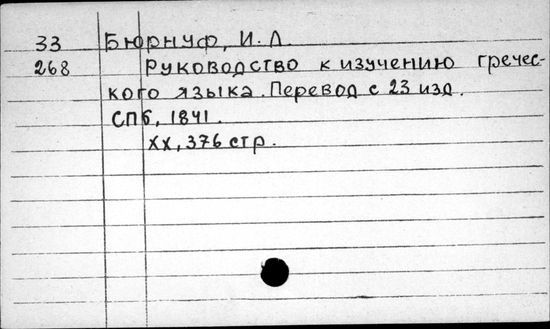 33 Бюрнуф, И. Л.
268 Руководство к изучению гречес-
кого языка. Перевод с 23 изд.
СПб, 1841.
XX, 376 стр.